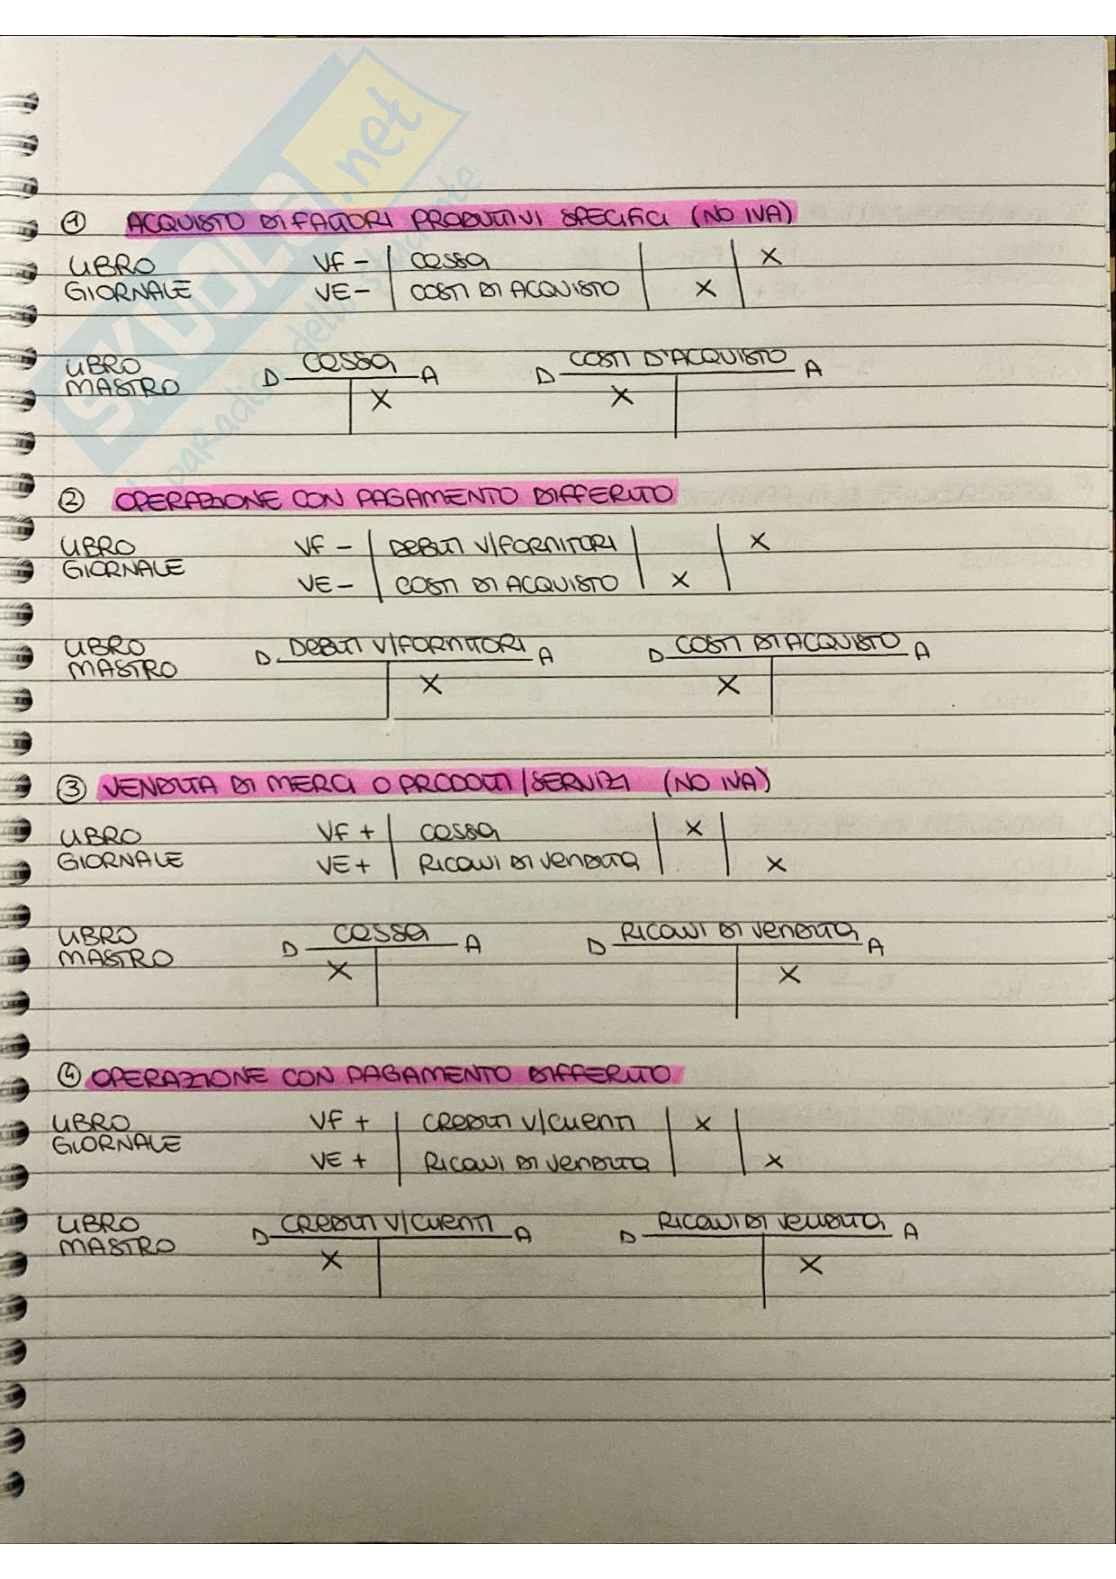 SKUOLA.net
il paradiso dello studente
① ACQUISTO DI FATTORI PRODUTTIVI SPECIFICI (NO IVA)
LIBRO VF - cassa X
GIORNALE VE - COSTI DI ACQUISTO X
LIBRO D cassa A D COSTI D'ACQUISTO A
MASTRO X X
② OPERAZIONE CON PAGAMENTO DIFFERITO
LIBRO VF - DEBITI V/FORNITORI X
GIORNALE VE - COSTI DI ACQUISTO X
LIBRO D DEBITI V/FORNITORI A D COSTI DI ACQUISTO A
MASTRO X X
③ VENDITA DI MERCI O PRODOTTI/SERVIZI (NO IVA)
LIBRO VF + cassa X
GIORNALE VE + RICAVI DI VENDITA X
LIBRO D cassa A D RICAVI DI VENDITA A
MASTRO X X
④ OPERAZIONE CON PAGAMENTO DIFFERITO
LIBRO VF + CREDITI V/CLIENTI X
GIORNALE VE + RICAVI DI VENDITA X
LIBRO D CREDITI V/CLIENTI A D RICAVI DI VENDITA A
MASTRO X X